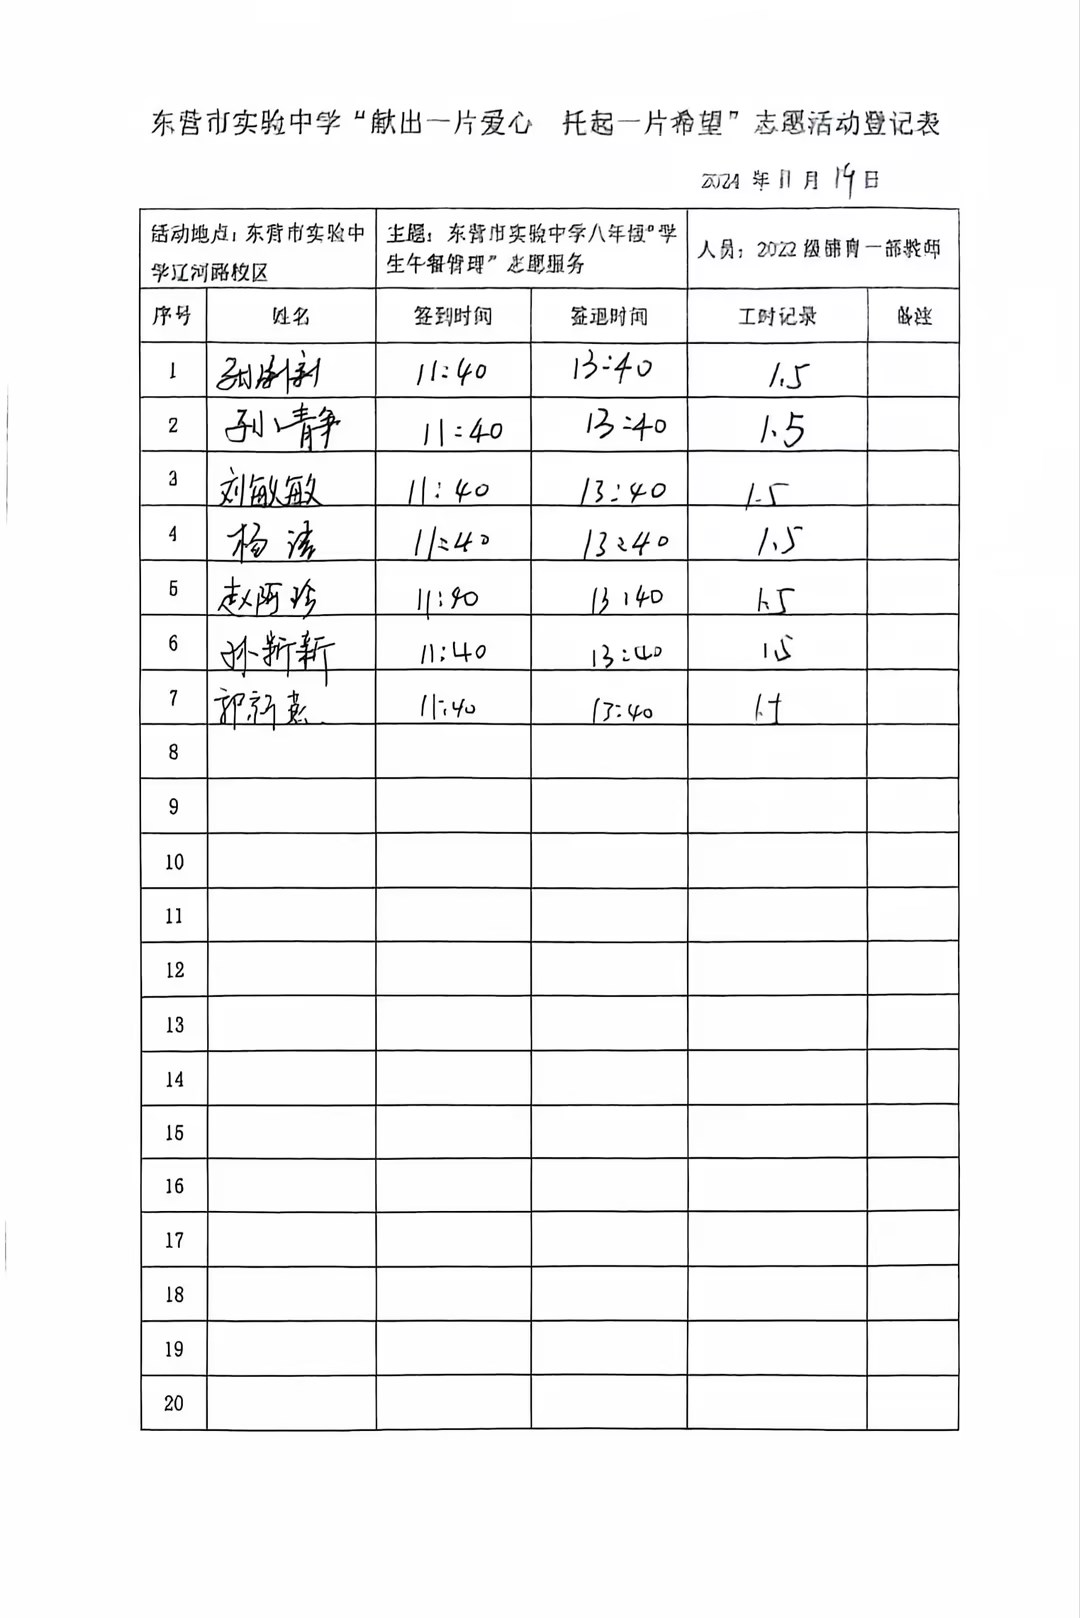 东营市实验中学“献出一片爱心 托起一片希望”志愿活动登记表
2024 年 11 月 19 日
活动地点：东营市实验中
学辽河路校区
主题：东营市实验中学八年级“学
生午餐管理”志愿服务
人员：2022 级 一部教师
序号 姓名 签到时间 签退时间 工时记录 备注
1 11:40 13:40 1.5
2 孙小静 11:40 13:40 1.5
3 刘敏敏 11:40 13:40 1.5
4 杨洁 11:40 13:40 1.5
5 赵阿玲 11:40 13:40 1.5
6 孙新新 11:40 13:40 1.5
7 11:40 13:40
8
9
10
11
12
13
14
15
16
17
18
19
20